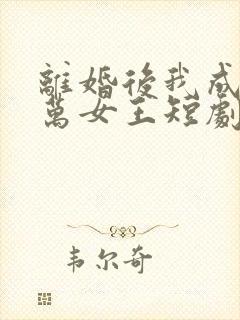 離婚後我成
萬女王短劇
韦尔奇